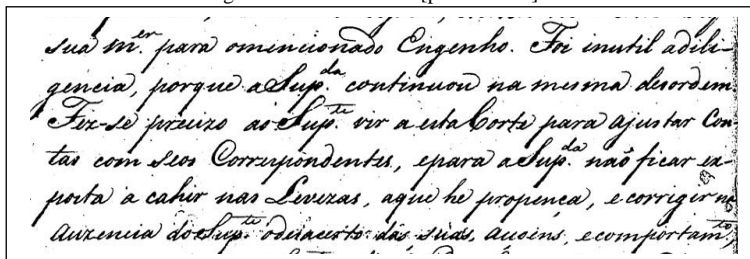 sua m.er para omencionado Engenho. Foi inutil adili-
gencia, porque a Sup.da continuou na mesma desordem
Fez-se precizo ao Sup.te vir a esta Corte para ajustar Con-
tas com seos Correspondentes, epara a Sup.da não ficar ex-
posta a cahir nas Levezas, aque he propença, e corrigir na
auzencia do Sup.te odesacerto das suas, acoens, ecomportam.to,